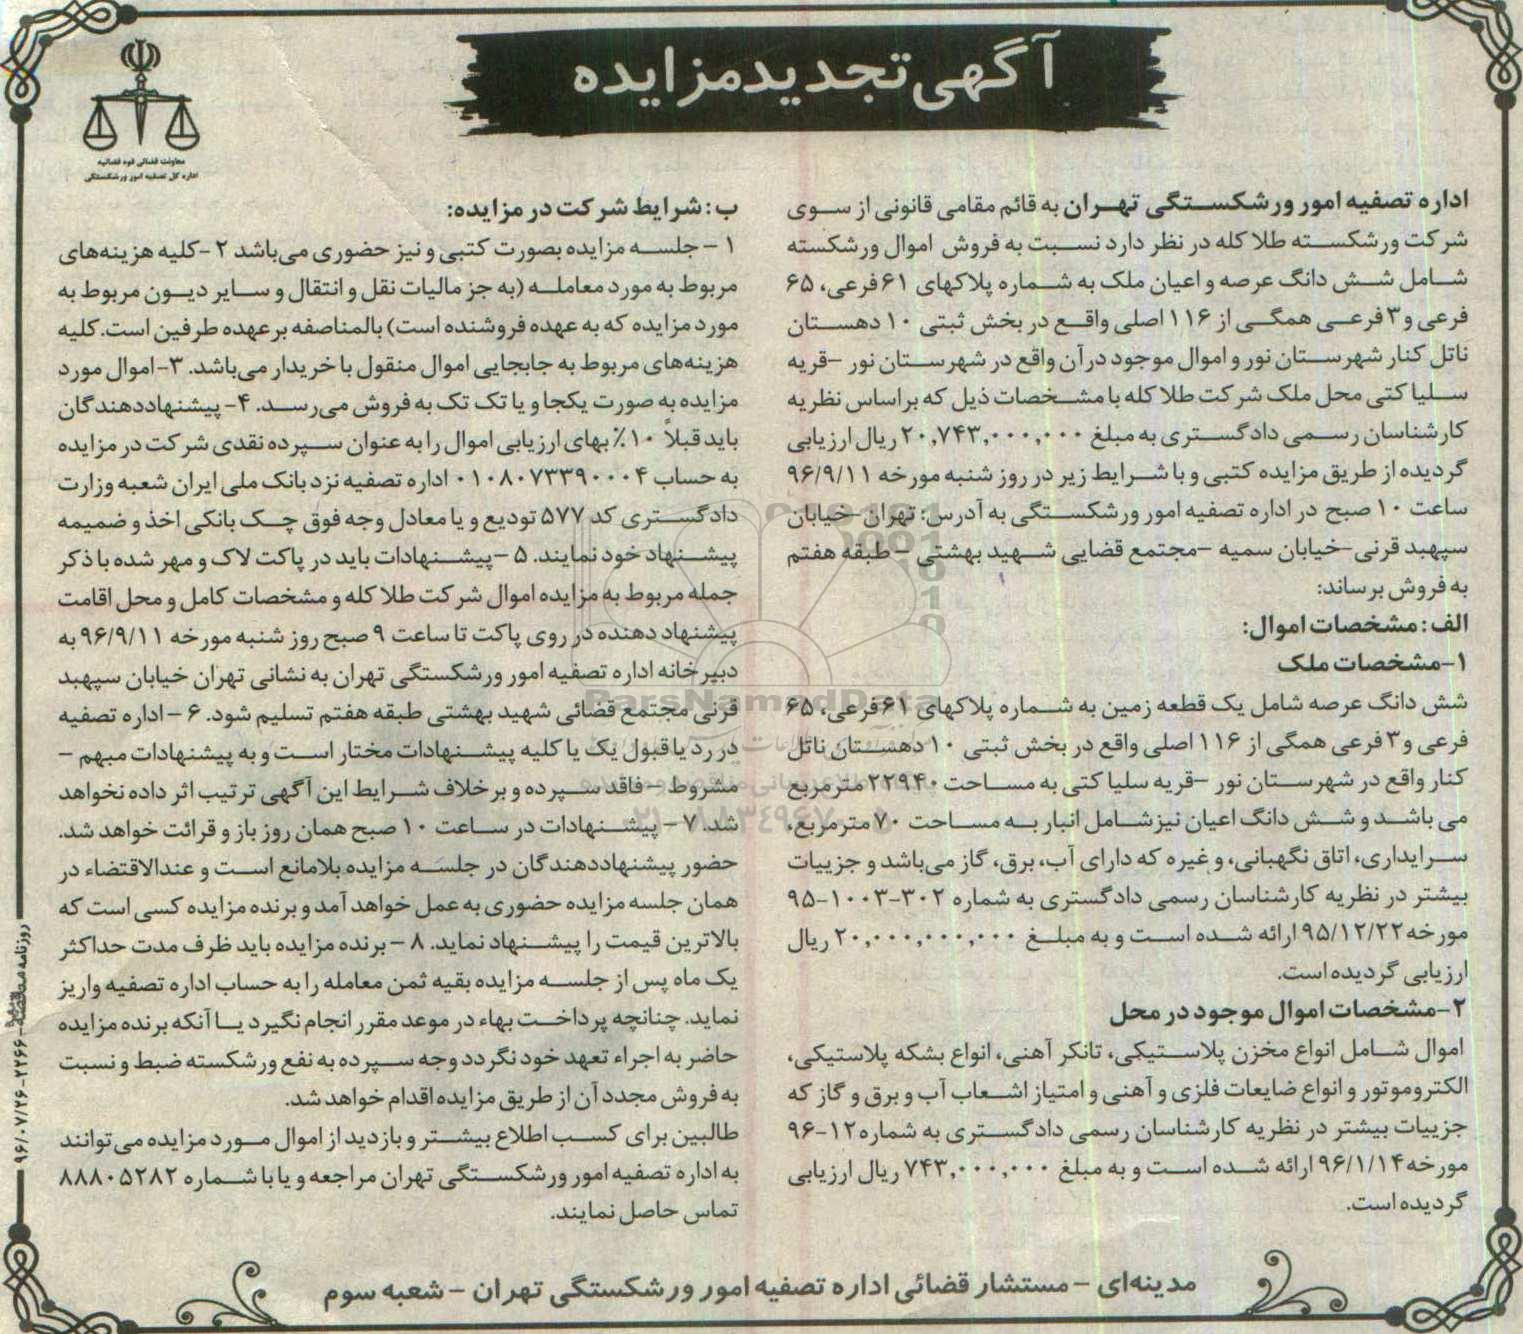 آگهی تجدید مزایده
معاونت قضائی قوه قضائیه
اداره کل تصفیه امور ورشکستگی
اداره تصفیه امور ورشکستگی تهران به قائم مقامی قانونی از سوی
شرکت ورشکسته طلا کله در نظر دارد نسبت به فروش اموال ورشکسته
شامل شش دانگ عرصه و اعیان ملک به شماره پلاکهای ۶۱ فرعی، ۶۵
فرعی و ۳ فرعی همگی از ۱۱۶ اصلی واقع در بخش ثبتی ۱۰ دهستان
ناتل کنار شهرستان نور و اموال موجود در آن واقع در شهرستان نور –قریه
سلیا کتی محل ملک شرکت طلا کله با مشخصات ذیل که براساس نظریه
کارشناسان رسمی دادگستری به مبلغ ۲۰,۷۴۳,۰۰۰,۰۰۰ ریال ارزیابی
گردیده از طریق مزایده کتبی و با شرایط زیر در روز شنبه مورخه ۹۶/۹/۱۱
ساعت ۱۰ صبح در اداره تصفیه امور ورشکستگی به آدرس: تهران –خیابان
سپهبد قرنی–خیابان سمیه –مجتمع قضایی شهید بهشتی – طبقه هفتم
به فروش برساند:
الف: مشخصات اموال:
۱-مشخصات ملک
شش دانگ عرصه شامل یک قطعه زمین به شماره پلاکهای ۶۱ فرعی، ۶۵
فرعی و ۳ فرعی همگی از ۱۱۶ اصلی واقع در بخش ثبتی ۱۰ دهستان ناتل
کنار واقع در شهرستان نور –قریه سلیا کتی به مساحت ۲۲۹۴۰ مترمربع
می باشد و شش دانگ اعیان نیز شامل انبار به مساحت ۷۰ مترمربع،
سرایداری، اتاق نگهبانی، و غیره که دارای آب، برق، گاز می‌باشد و جزییات
بیشتر در نظریه کارشناسان رسمی دادگستری به شماره ۳۰۲-۱۰۰۳-۹۵
مورخه ۹۵/۱۲/۲۲ ارائه شده است و به مبلغ ۲۰,۰۰۰,۰۰۰,۰۰۰ ریال
ارزیابی گردیده است.
۲-مشخصات اموال موجود در محل
اموال شامل انواع مخزن پلاستیکی، تانکر آهنی، انواع بشکه پلاستیکی،
الکتروموتور و انواع ضایعات فلزی و آهنی و امتیاز اشعاب آب و برق و گاز که
جزییات بیشتر در نظریه کارشناسان رسمی دادگستری به شماره ۱۲-۹۶
مورخه ۹۶/۱/۱۴ ارائه شده است و به مبلغ ۷۴۳,۰۰۰,۰۰۰ ریال ارزیابی
گردیده است.
ب: شرایط شرکت در مزایده:
۱ – جلسه مزایده بصورت کتبی و نیز حضوری می‌باشد ۲ -کلیه هزینه‌های
مربوط به مورد معامله (به جز مالیات نقل و انتقال و سایر دیون مربوط به
مورد مزایده که به عهده فروشنده است) بالمناصفه برعهده طرفین است.کلیه
هزینه‌های مربوط به جابجایی اموال منقول با خریدار می‌باشد. ۳-اموال مورد
مزایده به صورت یکجا و یا تک تک به فروش می‌رسد. ۴- پیشنهاددهندگان
باید قبلاً ۱۰٪ بهای ارزیابی اموال را به عنوان سپرده نقدی شرکت در مزایده
به حساب ۰۱۰۸۰۷۳۳۹۰۰۰۴ اداره تصفیه نزد بانک ملی ایران شعبه وزارت
دادگستری کد ۵۷۷ تودیع و یا معادل وجه فوق چک بانکی اخذ و ضمیمه
پیشنهاد خود نمایند. ۵ –پیشنهادات باید در پاکت لاک و مهر شده با ذکر
جمله مربوط به مزایده اموال شرکت طلا کله و مشخصات کامل و محل اقامت
پیشنهاد دهنده در روی پاکت تا ساعت ۹ صبح روز شنبه مورخه ۹۶/۹/۱۱ به
دبیرخانه اداره تصفیه امور ورشکستگی تهران به نشانی تهران خیابان سپهبد
قرنی مجتمع قضائی شهید بهشتی طبقه هفتم تسلیم شود. ۶ – اداره تصفیه
در رد یا قبول یک یا کلیه پیشنهادات مختار است و به پیشنهادات مبهم –
مشروط – فاقد سپرده و برخلاف شرایط این آگهی ترتیب اثر داده نخواهد
شد. ۷ – پیشنهادات در ساعت ۱۰ صبح همان روز باز و قرائت خواهد شد.
حضور پیشنهاددهندگان در جلسه مزایده بلامانع است و عندالاقتضاء در
همان جلسه مزایده حضوری به عمل خواهد آمد و برنده مزایده کسی است که
بالاترین قیمت را پیشنهاد نماید. ۸ – برنده مزایده باید ظرف مدت حداکثر
یک ماه پس از جلسه مزایده بقیه ثمن معامله را به حساب اداره تصفیه واریز
نماید. چنانچه پرداخت بهاء در موعد مقرر انجام نگیرد یا آنکه برنده مزایده
حاضر به اجراء تعهد خود نگردد وجه سپرده به نفع ورشکسته ضبط و نسبت
به فروش مجدد آن از طریق مزایده اقدام خواهد شد.
طالبین برای کسب اطلاع بیشتر و بازدید از اموال مورد مزایده می‌توانند
به اداره تصفیه امور ورشکستگی تهران مراجعه و یا با شماره ۸۸۸۰۵۲۸۲
تماس حاصل نمایند.
مدینه‌ای – مستشار قضائی اداره تصفیه امور ورشکستگی تهران – شعبه سوم
روزنامه مناقصه-۲۲۶۶-۹۶/۰۷/۲۶
ParsNamadData